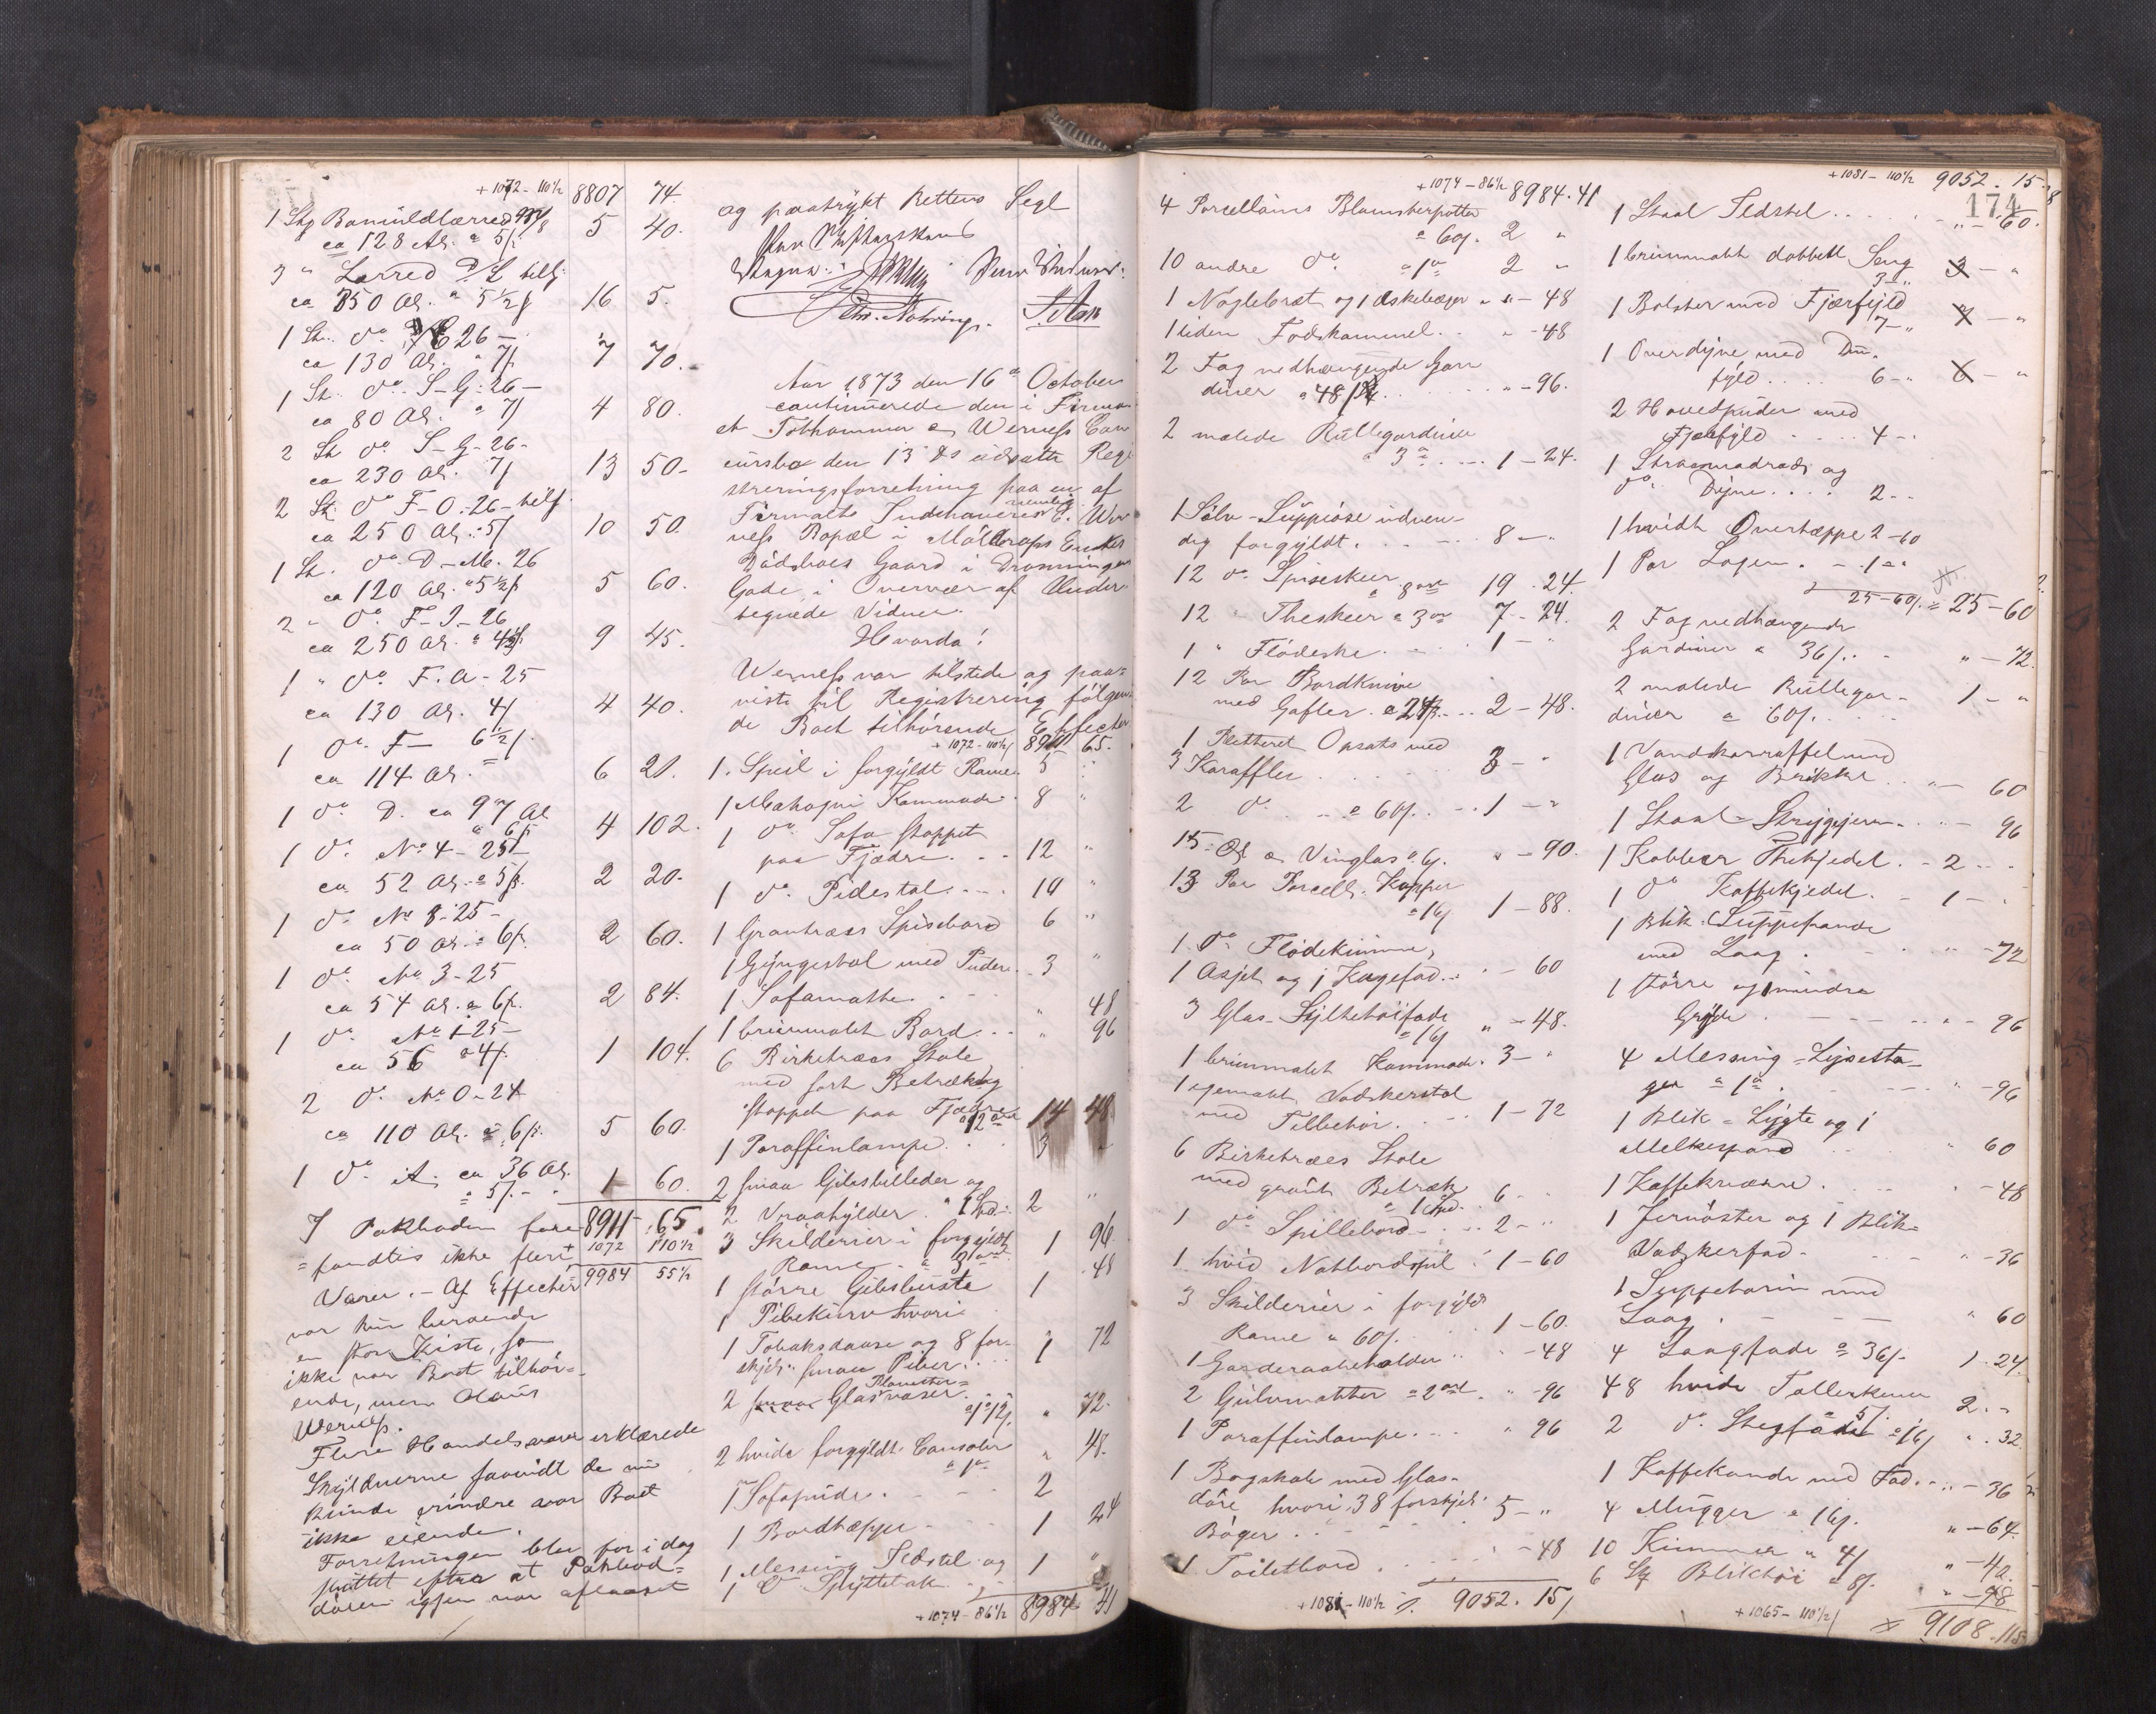 +1072 - 110½ 8807 74.
1 Stk Bomuldlærred
ca 128 Al. a 5/. 5 40.
3 " Lærred D/L
ca 350 Al. a 5½ 16 5.
1 St. do 26 -
ca 130 Al. a 7/ 7 70.
1 St. do S-G-26-
ca 80 Al. a 7/ 4 80.
2 St do S-G-26-
ca 230 Al. 7/ 13 50-
2 St. do F-O-26-
ca 250 Al. 5/ 10 50.
1 St. do D-M. 26
ca 120 Al. a 5½ 5 60.
2 " do F-I-26
ca 250 Al. a 9 45.
1 " do F. A-25
ca 130 Al. 4/ 4 40.
1 do F- 6½/.
ca 114 Al. 6 21.
1 do D. ca 97 Al
a 6/ 4 102.
1 do No 4-25
ca 52 Al. a 5/. 2 20.
1 do No 8-25-
ca 50 Al. a 6/. 2 60.
1 do No 3-25
ca 54 Al. a 6/. 2 84.
1 do No 1-25-
ca 56 a 4/. 1 104.
2 do No 0-24
ca 110 Al. a 6/. 5 60.
1 do A. ca 36 Al.
a 5/. - 1 60.
I Pakboden fore 8911 65.
= fandtes ikke flere + 1072 110½
Varer. - Af Effecter 9984 55½
var kun beroende
en stor Kiste, som
ikke var Boet tilhør=
ende, men Hans
Werness.
Flere Handelsvarer erklærede
Skyldnerne saavidt de nu
kunde erindre var Boet
ikke eiende.
Forretningen blev for idag
sluttet efter at Pakbod=
døren igjen var aflaaset
og paatrykt Rettens Segl
Aar 1873 den 16de October
continuerede den i Firma
et Tothammer & Werness Con
cursbo den 13 ds udsatte Regi
streringsforretning paa en af
Firmaets Indehavere nemlig E. Wer
ness Bopæl i Møllerops Enkes
Gaard i Dronningens
Gade, i Overvær af Under
tegnede Vidner.
Hvorda!
Werness var tilstede og paa=
viste til Registrering følgen
de Boet tilhørende Effecter
+1072-110½ 8911 65.
1 Speil i forgyldt Rame. 5 "
1 Mahogni Kommode. 8 "
1 do Sofa stoppet
paa Fjædre. . . 12 "
1 do Pidestal. . . . 10 "
1 Grantræes Spisebord 6 "
1 Gyngestol med Puder. 3 "
1 Sofamatte. " 48
1 brunmalet Bord. . " 96
6 Birketræes Stole
med sort Betræk og
stoppet paa Fjædre
14 48.
1 Paraffinlampe. . 3 "
2 smaa Gibsbilleder og
2 Vraahylder. 2 "
3 Skilderier i forgyldt
Rame - 1 96
1 større Gibsbuste 1 48
1 Pibekurv hvori
1 Tobaksdaase og 8 for-
skjel. smaa Piber. . . 1 72
2 Blomster=
Glasvaser. a 12/. " 72.
2 hvide forgyldte Consoler
" 48.
1 Sofapude. 2
1 Bordtæppe - 1 24
1 Messing Ildstel og 1 "
1 do Spyttebak
+1074-86½ 8984 41
+1074-86½ 8984.41
4 Porcellains Blomsterpotter
a 60/. 2 "
10 andre do. 2 "
1 Nøglebræt og 1 Askebæger " - 48
1 liden Fodskammel. . " -48
2 Fag nedhængende Gar
diner a 48/ " -96.
2 malede Rullegardiner
1 - 24.
1 Sølv-Suppeøse udven-
dig forgyldt. 8 - "
12 do Spiseskeer 19 . 24.
12 " Theskeer 7 - 24.
1 " Flødeske. 1 - "
12 Par Bordknive
med Gafler. a 24/. . . 2 - 48.
1 Pletteret Opsats med
3 Karaffler 3 - "
2 do. a 60/. . . 1 - "
15 Øl & Vinglas a 6/. " -90.
13 Par Porcell. Kopper
a 16/ 1 -88.
1 do Flødekumme,
1 Asjet og 1 Kagefad. . " - 60
3 Glas-Syltetøifade
a 16/ " -48.
1 brunmalet Kommode. 3- "
1 egemalet Vadskerstol
med Tilbehør. 1- 72
6 Birketræes Stole
med grønt Betræk 6 - "
1 do Spillebord. . . . 2 - "
1 hvid Natbordspil 1 - 60
3 Skilderier i forgyldt
Rame a 60/. 1 - 60.
1 Garderobeholder " -48
2 Gulvmatter " -96
1 Paraffinlampe. . . . " 96
1 Bogskab med Glas-
døre hvori 38 forskjel.
Bøger. 5 - "
1 Toiletbord " -48
+1081-110½ 9052.15/
+1081-110½ 9052.15.
174
1 Staal Ildstel. " - 60.
1 brunmalet dobbelt Seng
3 - "
1 Bolster med Fjærfyld
7 - "
1 Overdyne med Dun-
fyld. . . . . 6- "
2 Hovedpuder med
Fjærfyld . . . . 4 -
1 Straamadrads og
do Dyne. . . . 2 - -
1 hvidt Overtæppe 2 -60
1 Par Lagen. - 1 - "
25-60/. = 25-60
2 Fag nedhængende
Gardiner a 36/. " - 72.
2 malede Rullegar-
diner a 60/. 1 - "
1 Vandkaraffel med
Glas og Brikke " - 60
1 Staal-Strygejern. " - 96
1 Kobber Thekjedel. - 2 - "
1 do Kaffekjedel. - 1 - "
1 Blik-Suppepande
med Laag. " -72
1 større og 1 mindre
Gryde " - 96
4 Messing-Lysesta-
ger " -96
1 Blik-Lygte og 1
Melkespand " 60
1 Kaffekværn. " -48
1 Jernøster og 1 Blik-
Vadskerfad- " -36
1 Suppeterin med
Laag. " 60
4 Laagfade a 36/. 1. 24.
48 hvide Tallerkener
5/ 2. -
2 do Stegfade a 16/ " . 32.
1 Kaffekande med Fad. . " - 36
4 Mugger a 16/. " -64.
10 Kummer a 4/ " -40.
6 St. Bliktøi a 8/. " -48
+1065-110½/ 9108.115